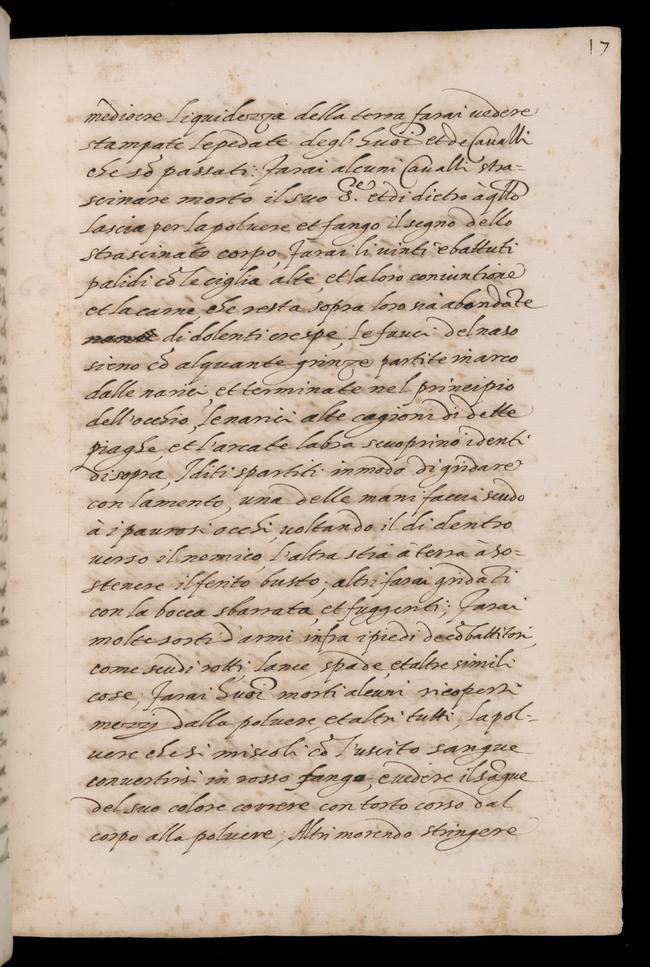 17
mediocre liquidezza della terra farai vedere
stampate le pedate degl'huoĩ et de Cavalli
che sõ passati: Farai alcuni Cavalli stra=
scinare morto il suo S.re et di dietro à q̃llo
lascia per la polvere et fango il segno dello
strascinato corpo, Farai li vinti e battuti
palidi cõ le ciglia alte, et la loro coniuntione
et la carne che resta sopra loro sia abondãte
di dolenti crespe, le fauci del naso
sieno cõ alquante grinze partite in arco
dalle narici, et terminate nel principio
dell'occhio, le narici alte cagioni di dette
piaghe, et l'arcate labra scuoprino i denti
di sopra, I diti spartiti in modo di gridare
con lamento, una delle mani facci scudo
à i paurosi occhi, voltando il di dentro
verso il nemico, l'altra stia à terra à so=
stenere il ferito busto; altri farai gridãti
con la bocca sbarrata, et fuggenti; Farai
molte sorti d'armi infra i piedi de cõbattitori,
come scudi rotti, lance, spade, et altre simili
cose, Farai huoĩ morti alcuni ricoperti
mezzi dalla polvere, et altri tutti, la pol=
vere che si miscoli cõ l'uscito sangue
convertirsi in rosso fango, e vedere il sãgue
del suo colore correre con torto corso dal
corpo alla polvere; Altri morendo stringere